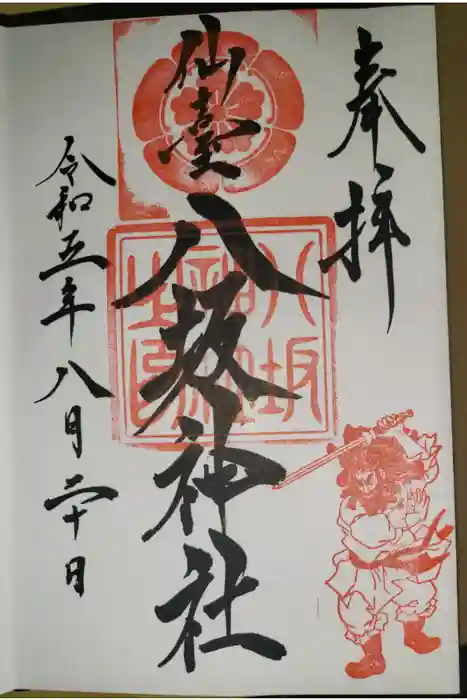 奉拝
仙臺
八坂神社
八坂神社之印
令和五年八月二十日